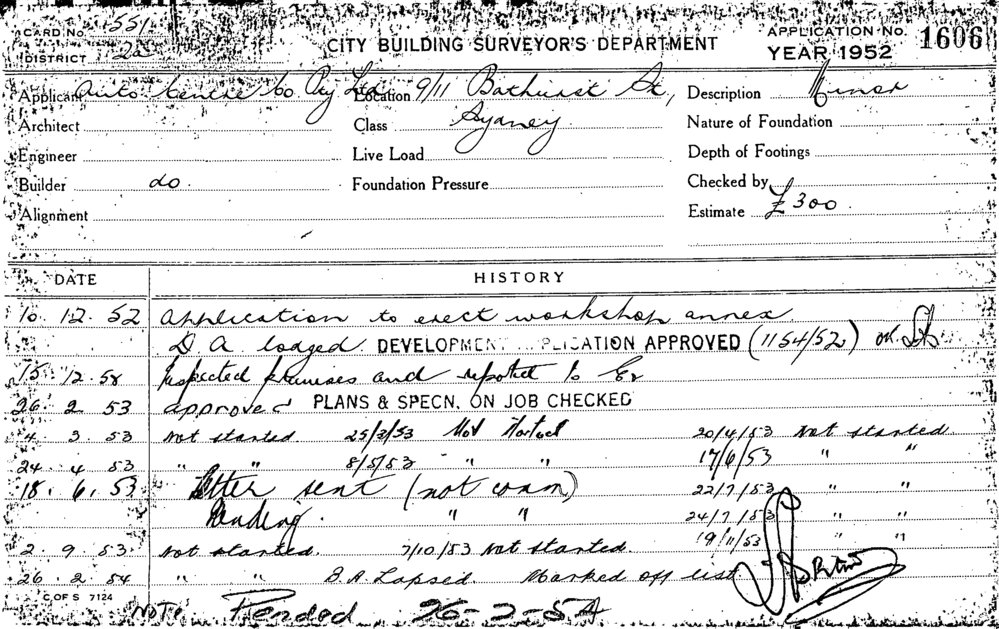 CARD No. 551/
DISTRICT 2B
CITY BUILDING SURVEYOR'S DEPARTMENT
APPLICATION No. 1606
YEAR 1952
Applicant Auto Centre Co Pty Ltd Location 9/11 Bathurst St, Description Minor
Architect Class Sydney Nature of Foundation
Engineer Live Load Depth of Footings
Builder do. Foundation Pressure Checked by
Alignment Estimate £300
DATE HISTORY
10. 12. 52 Application to erect workshop annex
D A lodged. DEVELOPMENT APPLICATION APPROVED (1154/52)
15. 12. 58 Inspected premises and reported to
26. 2 53 approved PLANS & SPECN. ON JOB CHECKED
4 3. 53 Not started. 25/3/53 Not started 20/4/53 Not started.
24. 4 53 " " 8/5/53 " " 17/6/53 " "
18. 6. 53 Letter sent (not comm) 22/7/53 " "
Pending. " " 24/7/53 " "
19/11/53 " "
2. 9 53. Not started. 7/10/53 Not started.
26. 2 54 " " B.A Lapsed. Marked off list
C.OF S 7124
NOTE Pended 26-2-54